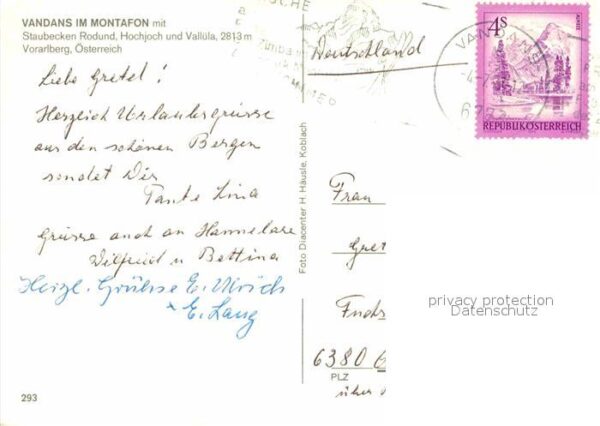 VANDANS IM MONTAFON mit
Staubecken Rodund, Hochjoch und Vallüla, 2813 m
Vorarlberg, Österreich
Liebe Gretel !
Herzlich Urlaubsgrüsse
aus den schönen Bergen
sendet Dir
Tante Lina
Grüsse auch an Hannelore
Wilfried u Bettina
Herzl. Grühse E. Ulrich
E. Lang
293
Foto Diacenter H. Häusle, Koblach
Deutschland
VANDANS
4S
REPUBLIK ÖSTERREICH
Frau
Gret
Fuchs
6380 6
PLZ
über
privacy protection
Datenschutz